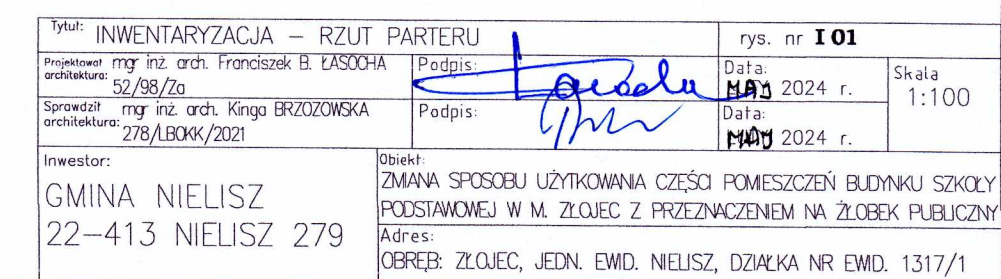 Tytuł: INWENTARYZACJA – RZUT PARTERU
rys. nr I 01
Projektował architektura: mgr inż. arch. Franciszek B. ŁASOCHA
52/98/Za
Podpis: Łasocha
Data: MAJ 2024 r.
Skala
1:100
Sprawdził architektura: mgr inż. arch. Kinga BRZOZOWSKA
278/LBOKK/2021
Podpis:
Data: MAJ 2024 r.
Inwestor:
GMINA NIELISZ
22–413 NIELISZ 279
Obiekt:
ZMIANA SPOSOBU UŻYTKOWANIA CZĘŚCI POMIESZCZEŃ BUDYNKU SZKOŁY
PODSTAWOWEJ W M. ZŁOJEC Z PRZEZNACZENIEM NA ŻŁOBEK PUBLICZNY
Adres:
OBRĘB: ZŁOJEC, JEDN. EWID. NIELISZ, DZIAŁKA NR EWID. 1317/1